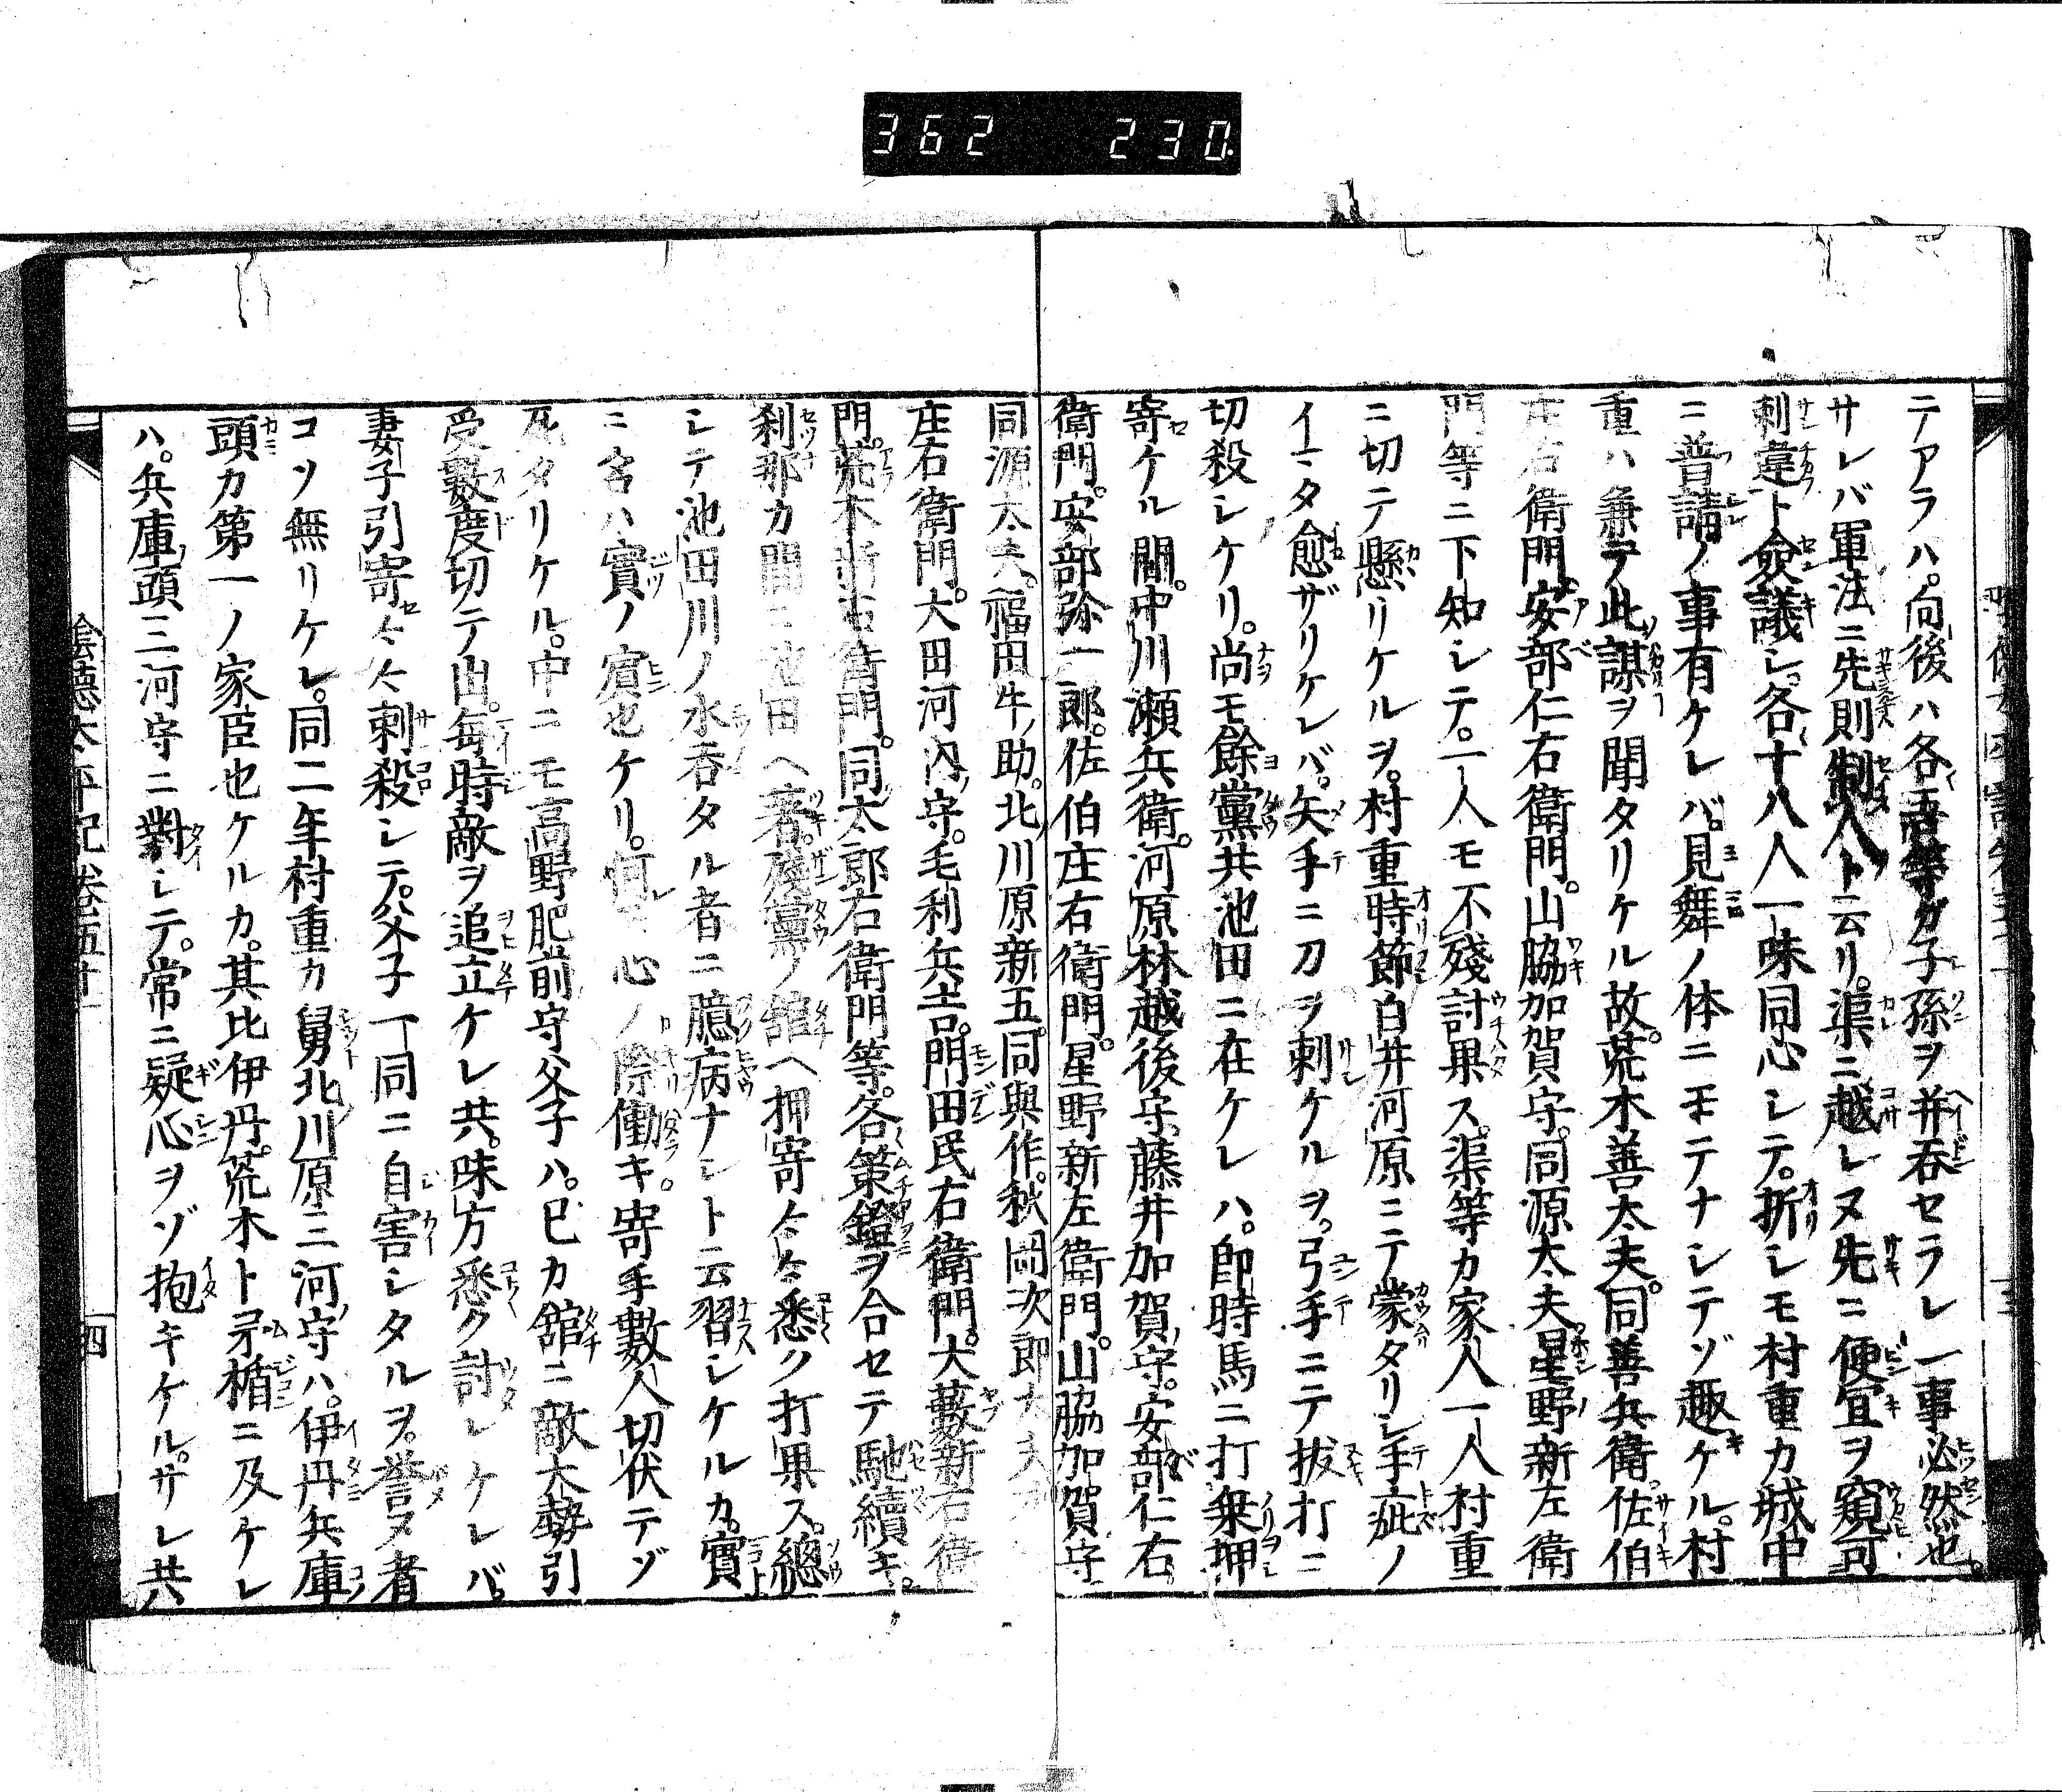 362 230
テアラハ。向後ハ各吾等ガ子孫ヲ并呑セラレン事必然也。
サレバ軍法ニ先則制人ト云リ。渠ニ越レヌ先ニ便宜ヲ窺可
刺違ト僉議シ。各十八人一味同心シテ。折シモ村重カ城中
ニ普請ノ事有ケレバ。見舞ノ体ニモテナシテゾ趣ケル。村
重ハ兼テ此謀ヲ聞タリケル故。荒木善太夫。同善兵衛。佐伯
庄右衛門安部仁右衛門。山脇加賀守。同源太夫。星野新左衛
門等ニ下知シテ。一人モ不殘討果ス。渠等カ家人一人村重
ニ切テ懸リケルヲ。村重時節白井河原ニテ蒙タリシ手疵ノ
イマタ愈ザリケレバ。矢手ニ刀ヲ刺ケルヲ。弓手ニテ抜打ニ
切殺シケリ。尚モ餘黨共池田ニ在ケレハ。即時馬ニ打乗押
寄ケル間。中川瀬兵衛。河原林越後守。藤井加賀守。安部仁右
衛門。安部弥一郎。佐伯庄右衛門。星野新左衛門。山脇加賀守
同源太夫。福田牛助。北川原新五。同與作。秋岡次郎大夫
庄右衛門。大田河内守。毛利兵吉。門田民右衛門。大藪新右衛
門。荒木新右衛門。同太郎右衛門等。各策鐙ヲ合セテ馳續キ。
刹那カ間ニ池田ヘ着。殘黨ノ舘ヘ押寄々々悉ク打果ス。總
シテ池田川ノ水呑タル者ニ臆病ナシト云習シケルカ。實
ニ名ハ實ノ賓也ケリ。何モ心ノ際働キ。寄手數人切伏テゾ
死タリケル。中ニモ高野肥前守父子ハ。己カ舘ニ敵大勢引
受數度切テ出。毎時敵ヲ追立ケレ共。味方悉ク討レケレバ。
妻子引寄々々刺殺シテ。父子一同ニ自害シタルヲ。誉ヌ者
コソ無リケレ。同二年村重カ舅北川原三河守ハ。伊丹兵庫
頭カ第一ノ家臣也ケルカ。其比伊丹。荒木ト矛楯ニ及ケレ
ハ。兵庫頭三河守ニ對シテ。常ニ疑心ヲゾ抱キケル。サレ共
陰德太平記卷五十 四